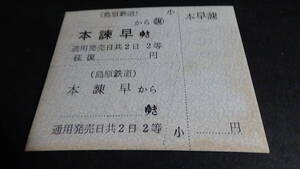 (島原鉄道) 小
から
本諫早ゆき
通用発売日共2日 2等
往復 円
(島原鉄道)
本諫早から
ゆき
通用発売日共2日 2等 小 円
本早諫